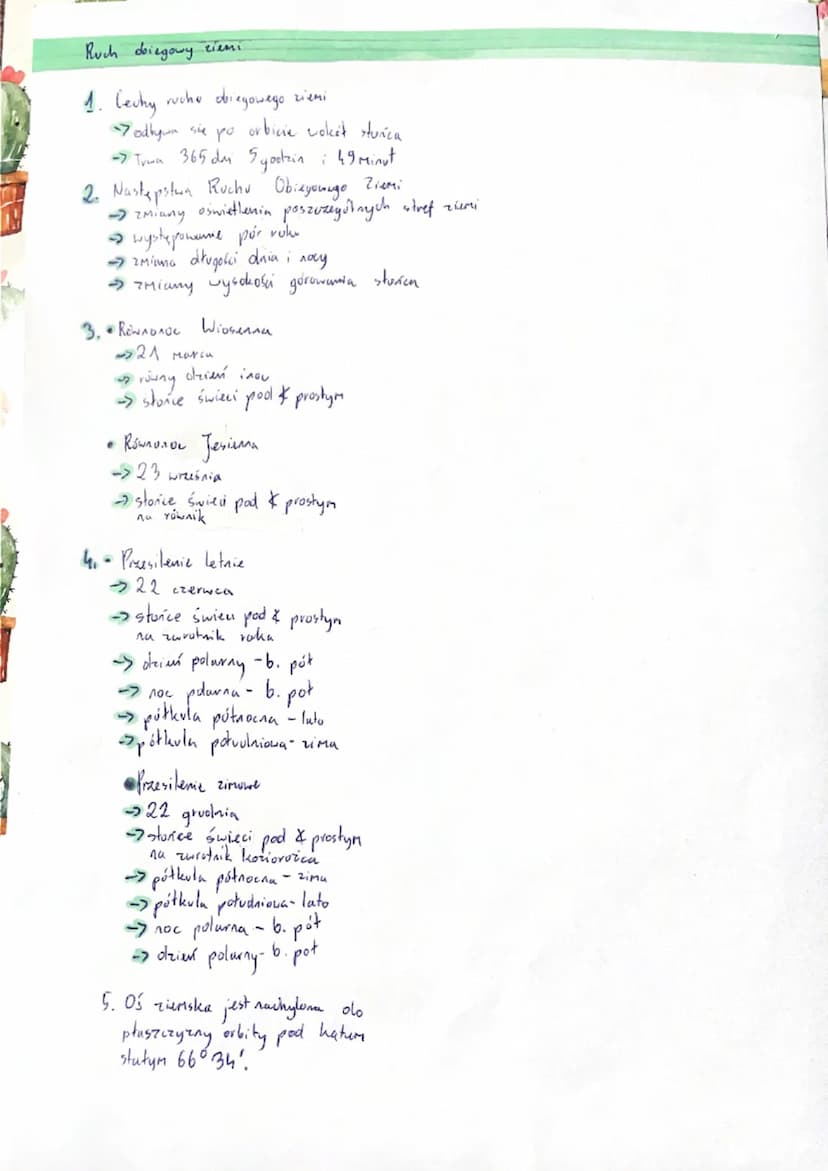 Ruch obiegowy ziemi
1. Cechy ruchu obiegowego ziemi
→ odbywa się po orbicie wokół słońca
→ Trwa 365 dni 5 godzin i 49 minut
2. Następstwa Ruchu Obiegowego Ziemi
→ zmiany oświetlenia poszczególnych stref ziemi
→ występowanie pór roku
→ zmiana długości dnia i nocy
→ zmiany wysokości górowania słońca
3. • Równonoc Wiosenna
→ 21 marca
→ równy dzień i noc
→ słońce świeci pod ∢ prostym
• Równonoc Jesienna
→ 23 września
→ słońce świeci pod ∢ prostym
na równik
4. • Przesilenie letnie
→ 22 czerwca
→ słońce świeci pod ∢ prostym
na zwrotnik raka
→ dzień polarny - b. pół
→ noc polarna - b. poł
→ półkula północna - lato
→ półkula południowa - zima
• Przesilenie zimowe
→ 22 grudnia
→ słońce świeci pod ∢ prostym
na zwrotnik koziorożca
→ półkula północna - zima
→ półkula południowa - lato
→ noc polarna - b. pół
→ dzień polarny - b. poł
5. Oś ziemska jest nachylona do
płaszczyzny orbity pod kątem
stałym 66°34'.